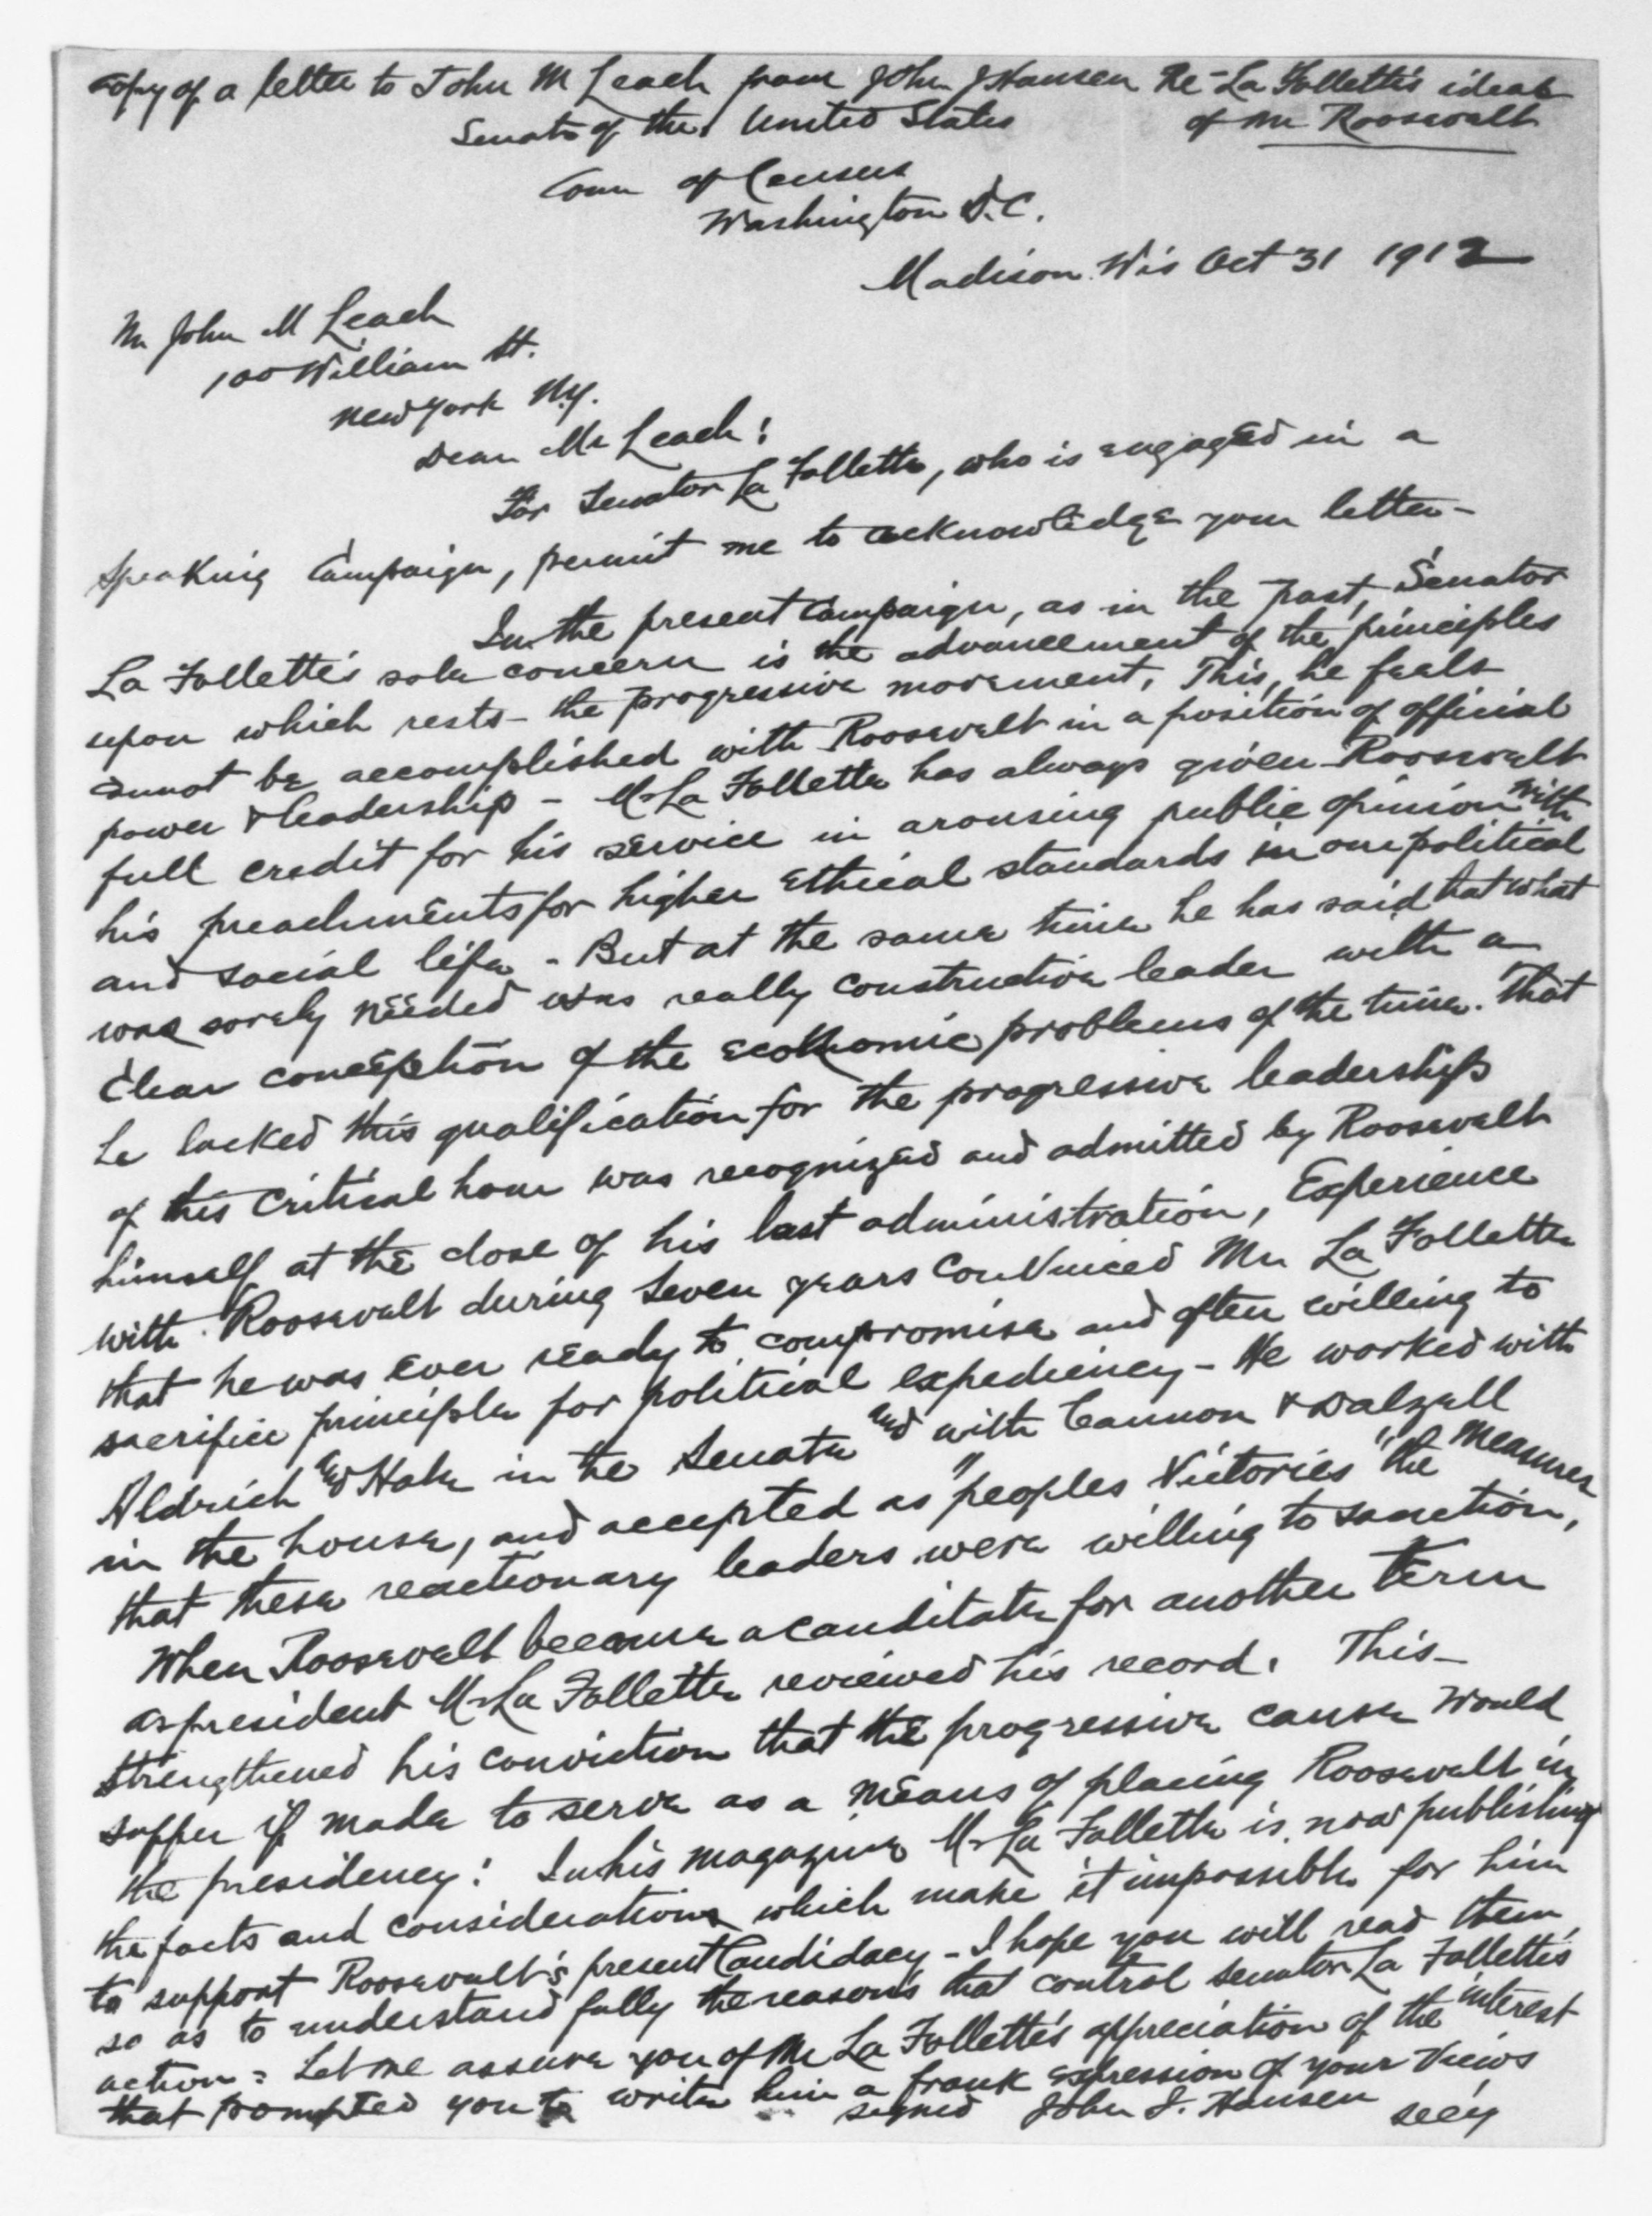 copy of a letter to John M Leach from John J Hansen Re-La Follette's ideas
of Mr Roosevelt
Senate of the United States
Com of Census
Washington D.C.
Madison Wis Oct 31 1912
Mr John M Leach
100 William St.
New York N.Y.
Dear Mr Leach:
For Senator La Follette, who is engaged in a
speaking Campaign, permit me to acknowledge your letter-
In the present campaign, as in the past, Senator
La Follette's sole concern is the advancement of the principles
upon which rests- the progressive movement. This, he feels
cannot be accomplished with Roosevelt in a position of official
power & leadership - Mr La Follette has always given Roosevelt
full credit for his service in arousing public opinion with
his preachments for higher Ethical standards in our political
and social life - But at the same time he has said that what
was sorely needed was really construction leader with a
clear conception of the economic problems of the time. That
he lacked this qualification for the progressive leadership
of this critical hour was recognized and admitted by Roosevelt
himself at the close of his last administration, Experience
with Roosevelt during seven years convinced Mr La Follette
that he was ever ready to compromise and often willing to
sacrifice principle for political expediency - He worked with
Aldrich and Hale in the Senate and with Cannon & Dalzell
in the house, and accepted as "peoples Victories" the measures
that these reactionary leaders were willing to sanction,
When Roosevelt became a canditate for another term
as president Mr La Follette reviewed his record. This-
strengthened his conviction that the progressive cause would
suffer if made to serve as a means of placing Roosevelt in
the presidency: In his magazine Mr La Follette is now publishing
the facts and considerations which make it impossible for him
to support Roosevelt's present Candidacy - I hope you will read them
so as to understand fully the reasons that control Senator La Follette's
action = Let me assure you of Mr La Follette's appreciation of the interest
that prompted you to write him a frank expression of your views
signed John J. Hansen secy